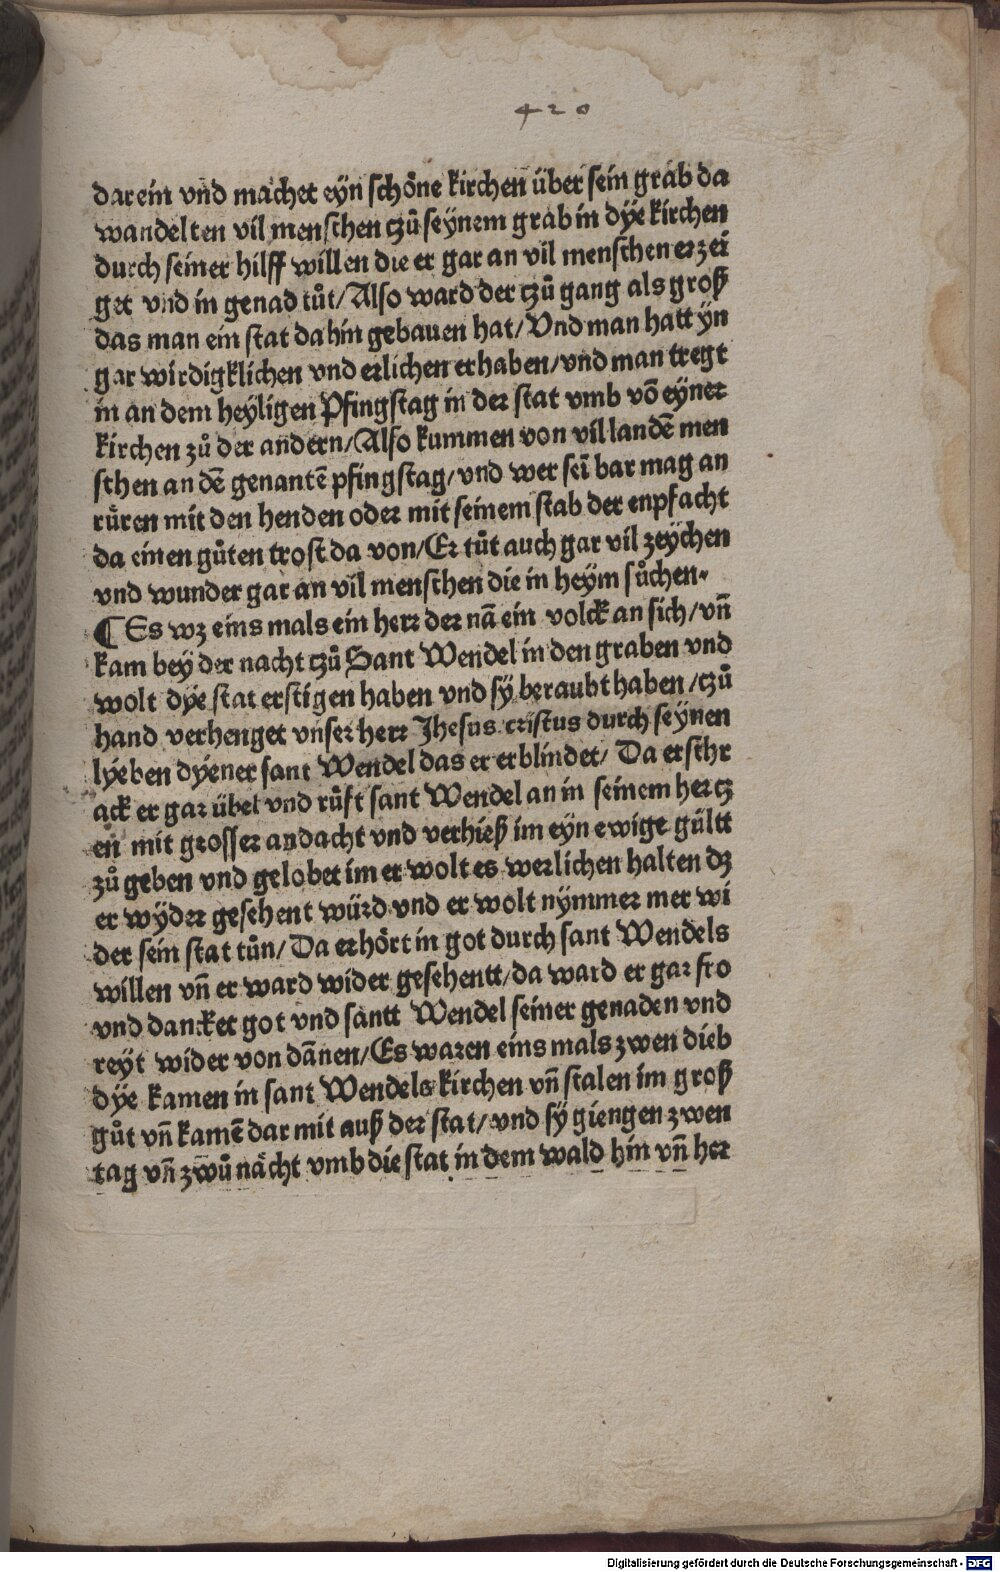 420
darein vnd machet eyn schóne kirchen über sein grab da
wandelten vil menschen tzů seynem grab in dÿe kirchen
durch seiner hilff willen die er gar an vil menschen erzei
get vnd in genad tůt/Also ward der tzů gang als groß
das man ein stat dahin gebauen hat/Vnd man hatt ÿn
gar wirdigklichen vnd erlichen erhaben/vnd man tregt
in an dem heyligen Pfingstag in der stat vmb võ eyner
kirchen zů der andern/Also kummen von vil landẽ men
schen an dẽ genantẽ pfingstag/vnd wer seĩ bar mag an
růren mit den henden oder mit seinem stab der enpfacht
da einen gůten trost da von/Er tůt auch gar vil zeÿchen
vnd wunder gar an vil menschen die in heÿm sůchen.
¶ Es wz eins mals ein herr der nã ein volck an sich/vñ
kam bey der nacht tzů Sant Wendel in den graben vnd
wolt dÿe stat erstigen haben vnd sÿ beraubt haben/tzů
hand verhenget vnser herr Jhesus cristus durch seÿnen
lÿeben dÿener sant Wendel das er erblindet/ Da erschr
ack er gar übel vnd růft sant Wendel an in seinem hertz
en mit grosser andacht vnd verhieß im eyn ewige gültt
zů geben vnd gelobet im er wolt es werlichen halten dz
er wÿder gesehent würd vnd er wolt nÿmmer mer wi
der sein stat tůn/ Da erhórt in got durch sant Wendels
willen vñ er ward wider gesehentt/da ward er gar fro
vnd dancket got vnd santt Wendel seiner genaden vnd
reyt wider von dãnen/Es waren eins mals zwen dieb
dÿe kamen in sant Wendels kirchen vñ stalen im groß
gůt vñ kamẽ dar mit auß der stat/vnd sÿ giengen zwen
tag vñ zwů nácht vmb die stat in dem wald hin vñ her
Digitalisierung gefördert durch die Deutsche Forschungsgemeinschaft - DFG